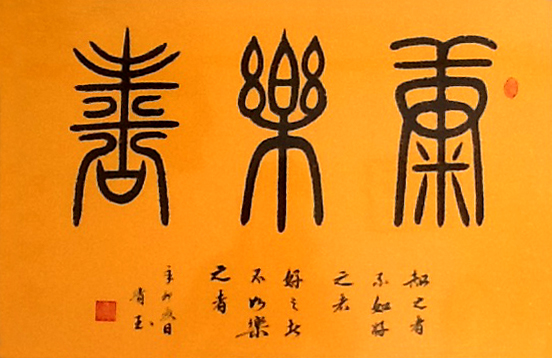 康樂
知之者
不如好
之者
好之者
不如樂
之者
辛卯夏日
玉